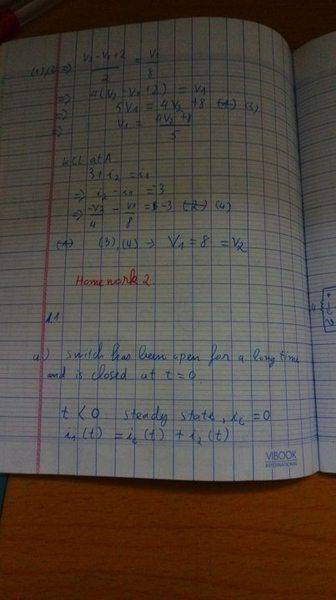 (1),(2) => (V2 - V1 + 2)/2 = V1/8
=> 4(V2 - V1 + 2) = V1
=> 5V1 = 4V2 + 8 (3)
=> V1 = (4V2 + 8)/5
KCL at A
3 + i2 = i1
=> i2 - i1 = -3
=> -V2/4 - V1/8 = -3 (4)
(3), (4) => V1 = 8 = V2
Homework 2.
1.1
a) switch has been open for a long time
and is closed at t = 0
t < 0 steady state, = 0
i1(t) = (t) + i2(t)
VIBOOK
INTERNATIONAL